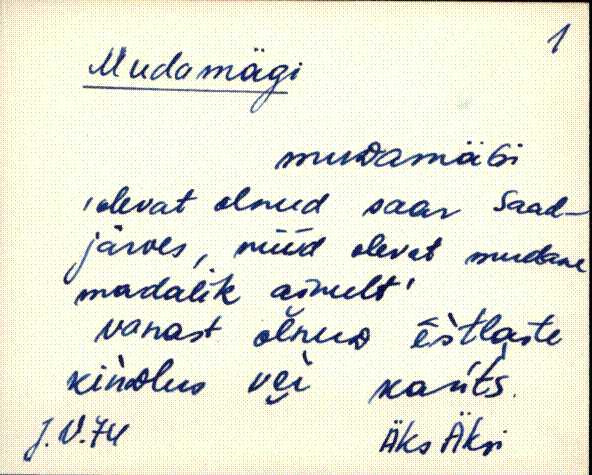 1
Mudamägi
mudamäGi
'olevat olnud saar Saad-
järves, nüüd olevat mudane
madalik ainult'
vanast olnuD ēstlaste
kinDlus vei kants.
J.V.74 Äks Äksi